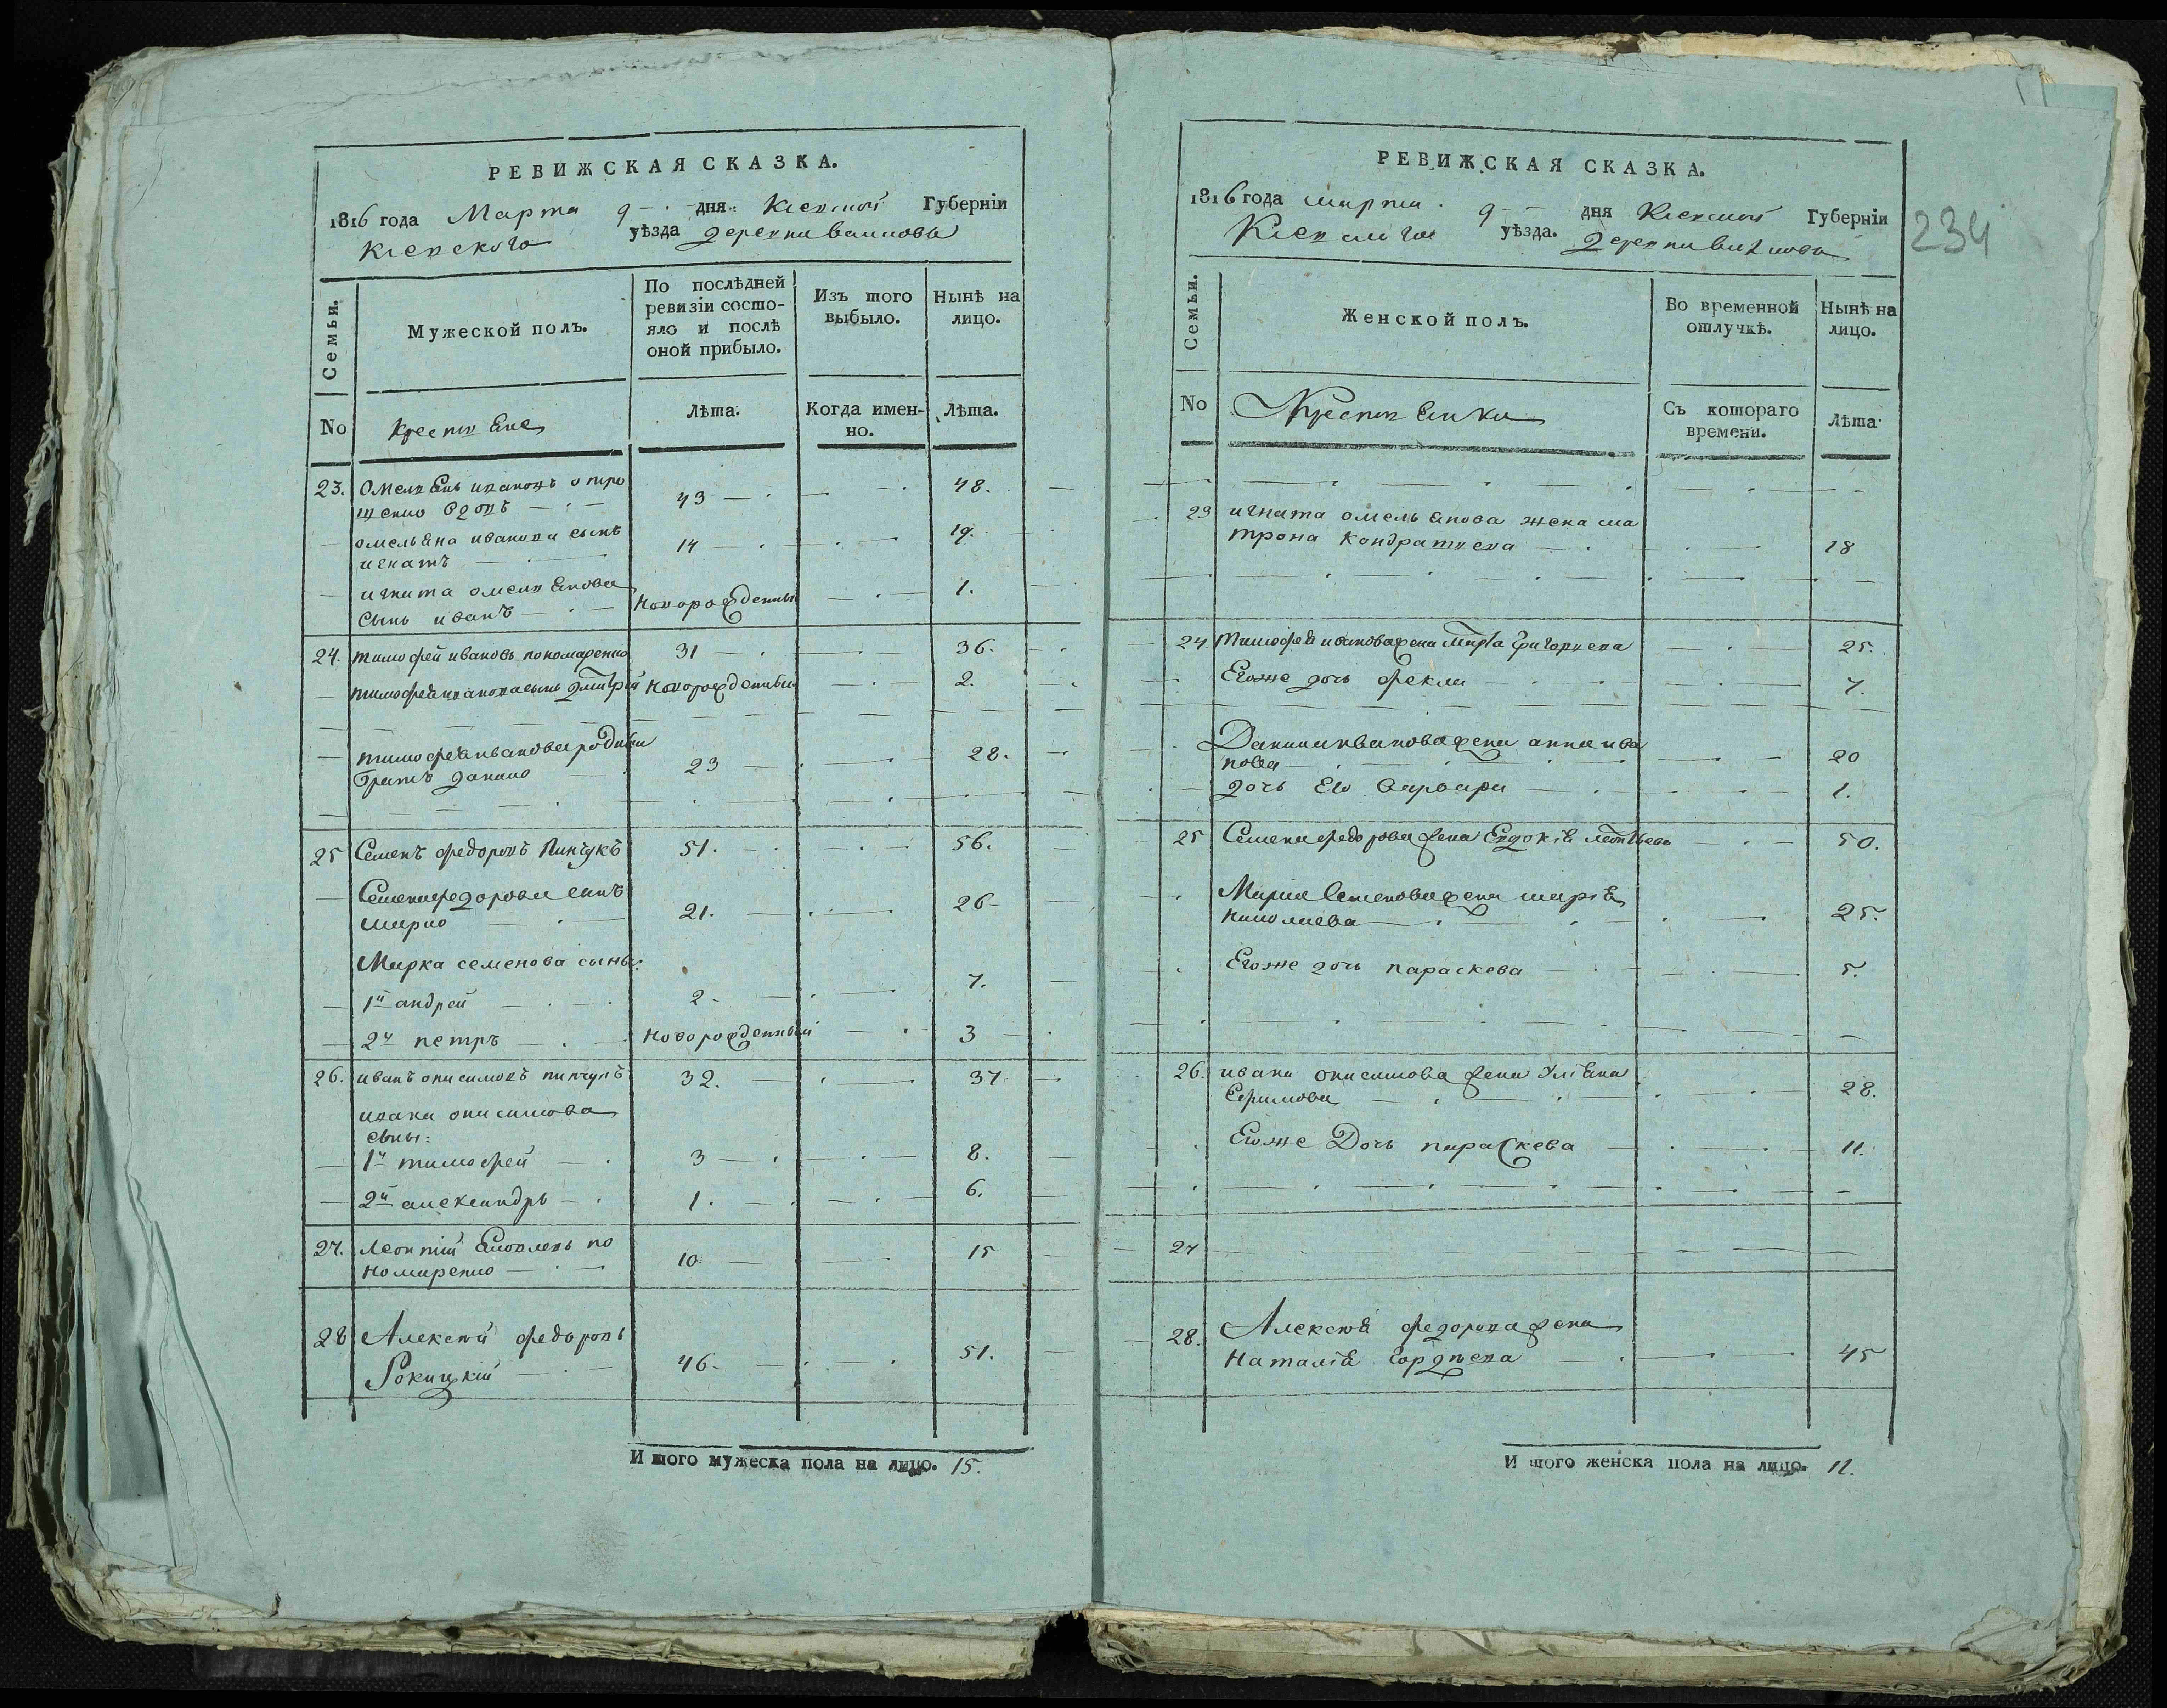 РЕВИЖСКАЯ СКАЗКА.
1816 года Марта 9 дня Киевской Губерніи
Киевского уѣзда деревни
Семьи.
Мужеской полъ.
По послѣдней ревизіи состояло и послѣ оной прибыло.
Изъ того выбыло.
Нынѣ на лицо.
No
Крестьяне
Лѣта.
Когда именно.
Лѣта.
23. Омельянъ ивановъ 43 48.
омельяна иванова сынъ
игнатъ 14 19.
игната омельянова
сынъ иванъ новорожденный 1.
24. тимофей ивановъ пономаренко 31 36.
тимофея иванова сынъ дмитрій новорожденный 2.
тимофея иванова родный
братъ данило 23 28.
25 Семенъ федоровъ Пинчукъ 51. 56.
Семена федорова сынъ
марко 21. 26
Марка семенова сыны:
1й андрей 2. 7.
2й петръ новорожденный 3
26. иванъ онисимовъ пинчукъ 32. 37
ивана онисимова
сыны:
1й тимофей 3 8.
2й александръ 1. 6.
27. леонтій по
номаренко 10 15
28 Алексѣй федоровъ
Рокицкій 46. 51.
И того мужеска пола на лицо. 15.
РЕВИЖСКАЯ СКАЗКА.
1816 года марта 9 дня Киевской Губерніи
Киевского уѣзда. деревни
234
Семьи.
Женской полъ.
Во временной отлучкѣ.
Нынѣ на лицо.
No
Крестьянки
Съ котораго времени.
Лѣта.
23 игната омельянова жена ма
трона кондратиева 18
24 тимофея иванова жена марфа григориева 25.
Егоже дочь фекла 7.
Данила иванова жена анна ива
нова 20
дочь Его варвара 1.
25 Семена федорова жена Евдокія 50.
Марка Семенова жена марія
николаева 25.
Егоже дочь параскева 5.
26. ивана онисимова жена Уліяна
Ефимова 28.
Егоже Дочь параскева 11.
27
28. Алексѣя федорова жена
Наталія гордѣева 45
И того женска пола на лицо. 11.